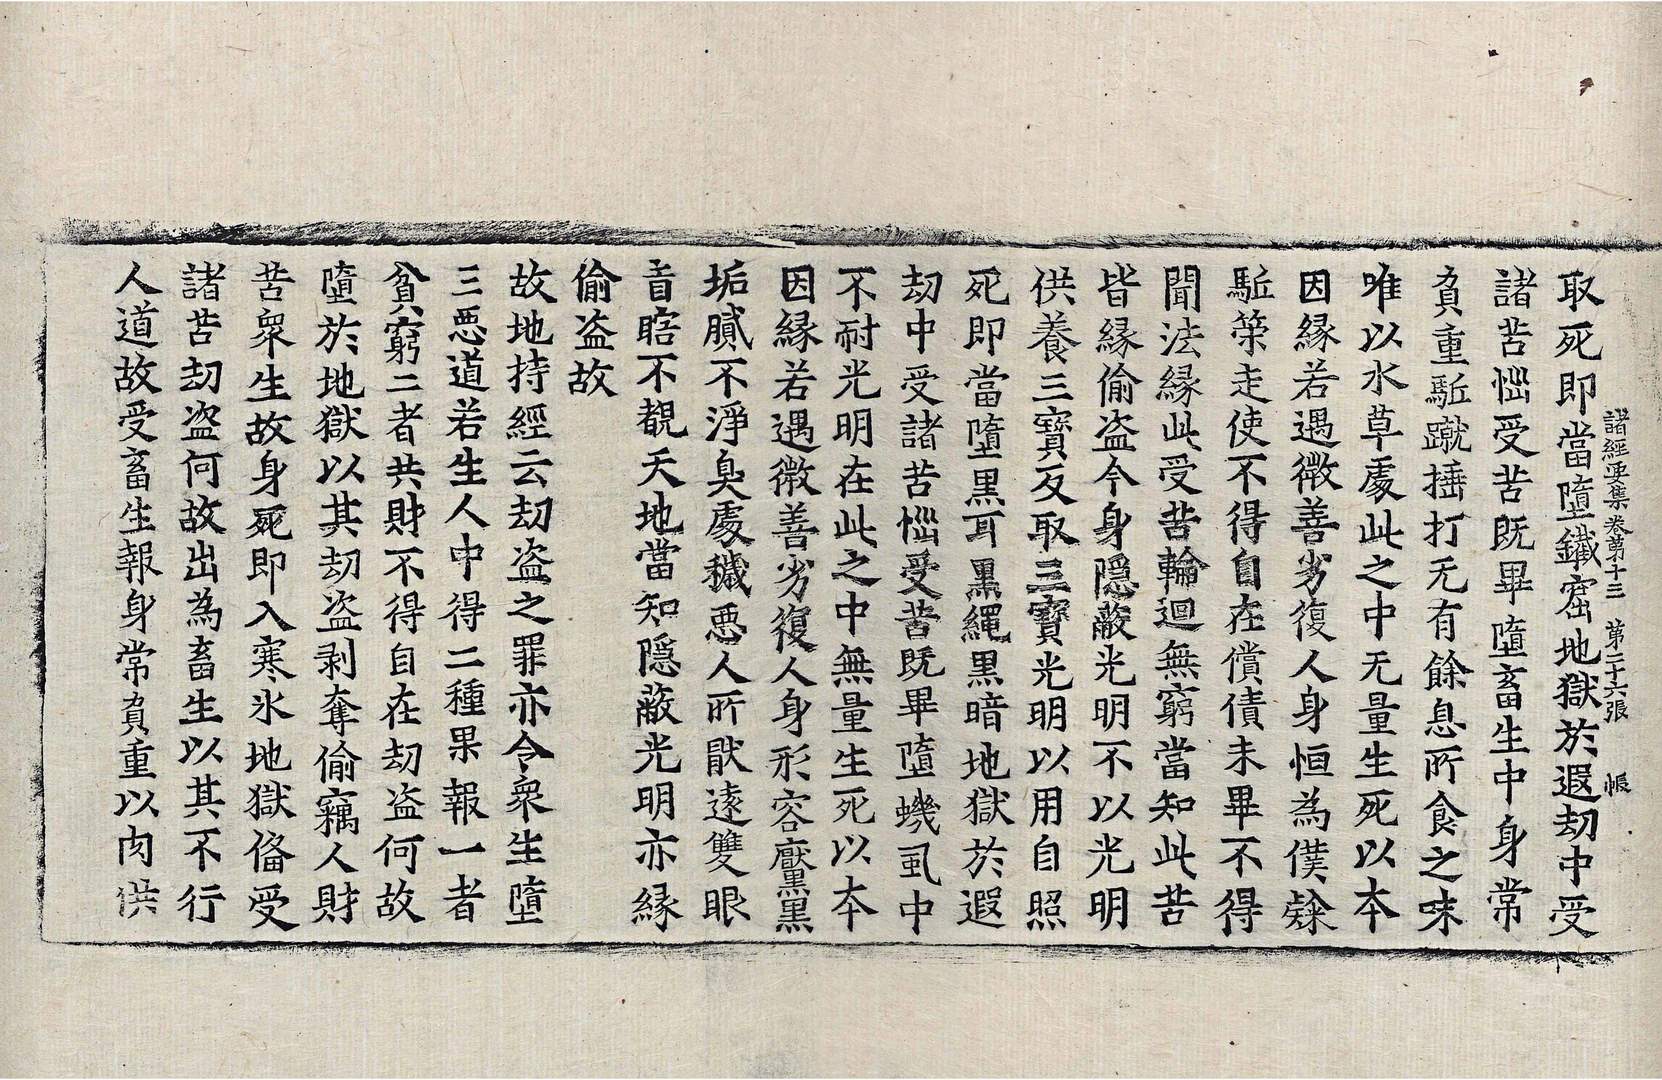 諸經要集卷第十三　第二十六張　帳
取死即當墮鐵窟地獄於遐劫中受
諸苦惱受苦既畢墮畜生中身常
負重駈蹴捶打无有餘息所食之味
唯以水草處此之中无量生死以本
因縁若遇微善劣復人身恒為僕隸
駈策走使不得自在償債未畢不得
聞法縁此受苦輪迴無窮當知此苦
皆縁偷盗今身隱蔽光明不以光明
供養三寶反取三寶光明以用自照
死即當墮黒耳黒繩黒暗地獄於遐
劫中受諸苦惱受苦既畢墮蟣虱中
不耐光明在此之中無量生死以本
因縁若遇微善劣復人身形容黶黒
垢膩不淨臭處穢惡人所猒遠雙眼
盲瞎不覩天地當知隱蔽光明亦縁
偷盗故
故地持經云劫盗之罪亦令衆生墮
三惡道若生人中得二種果報一者
貧窮二者共財不得自在劫盗何故
墮於地獄以其劫盗剥奪偷竊人財
苦衆生故身死即入寒氷地獄俻受
諸苦劫盗何故出為畜生以其不行
人道故受畜生報身常負重以肉供